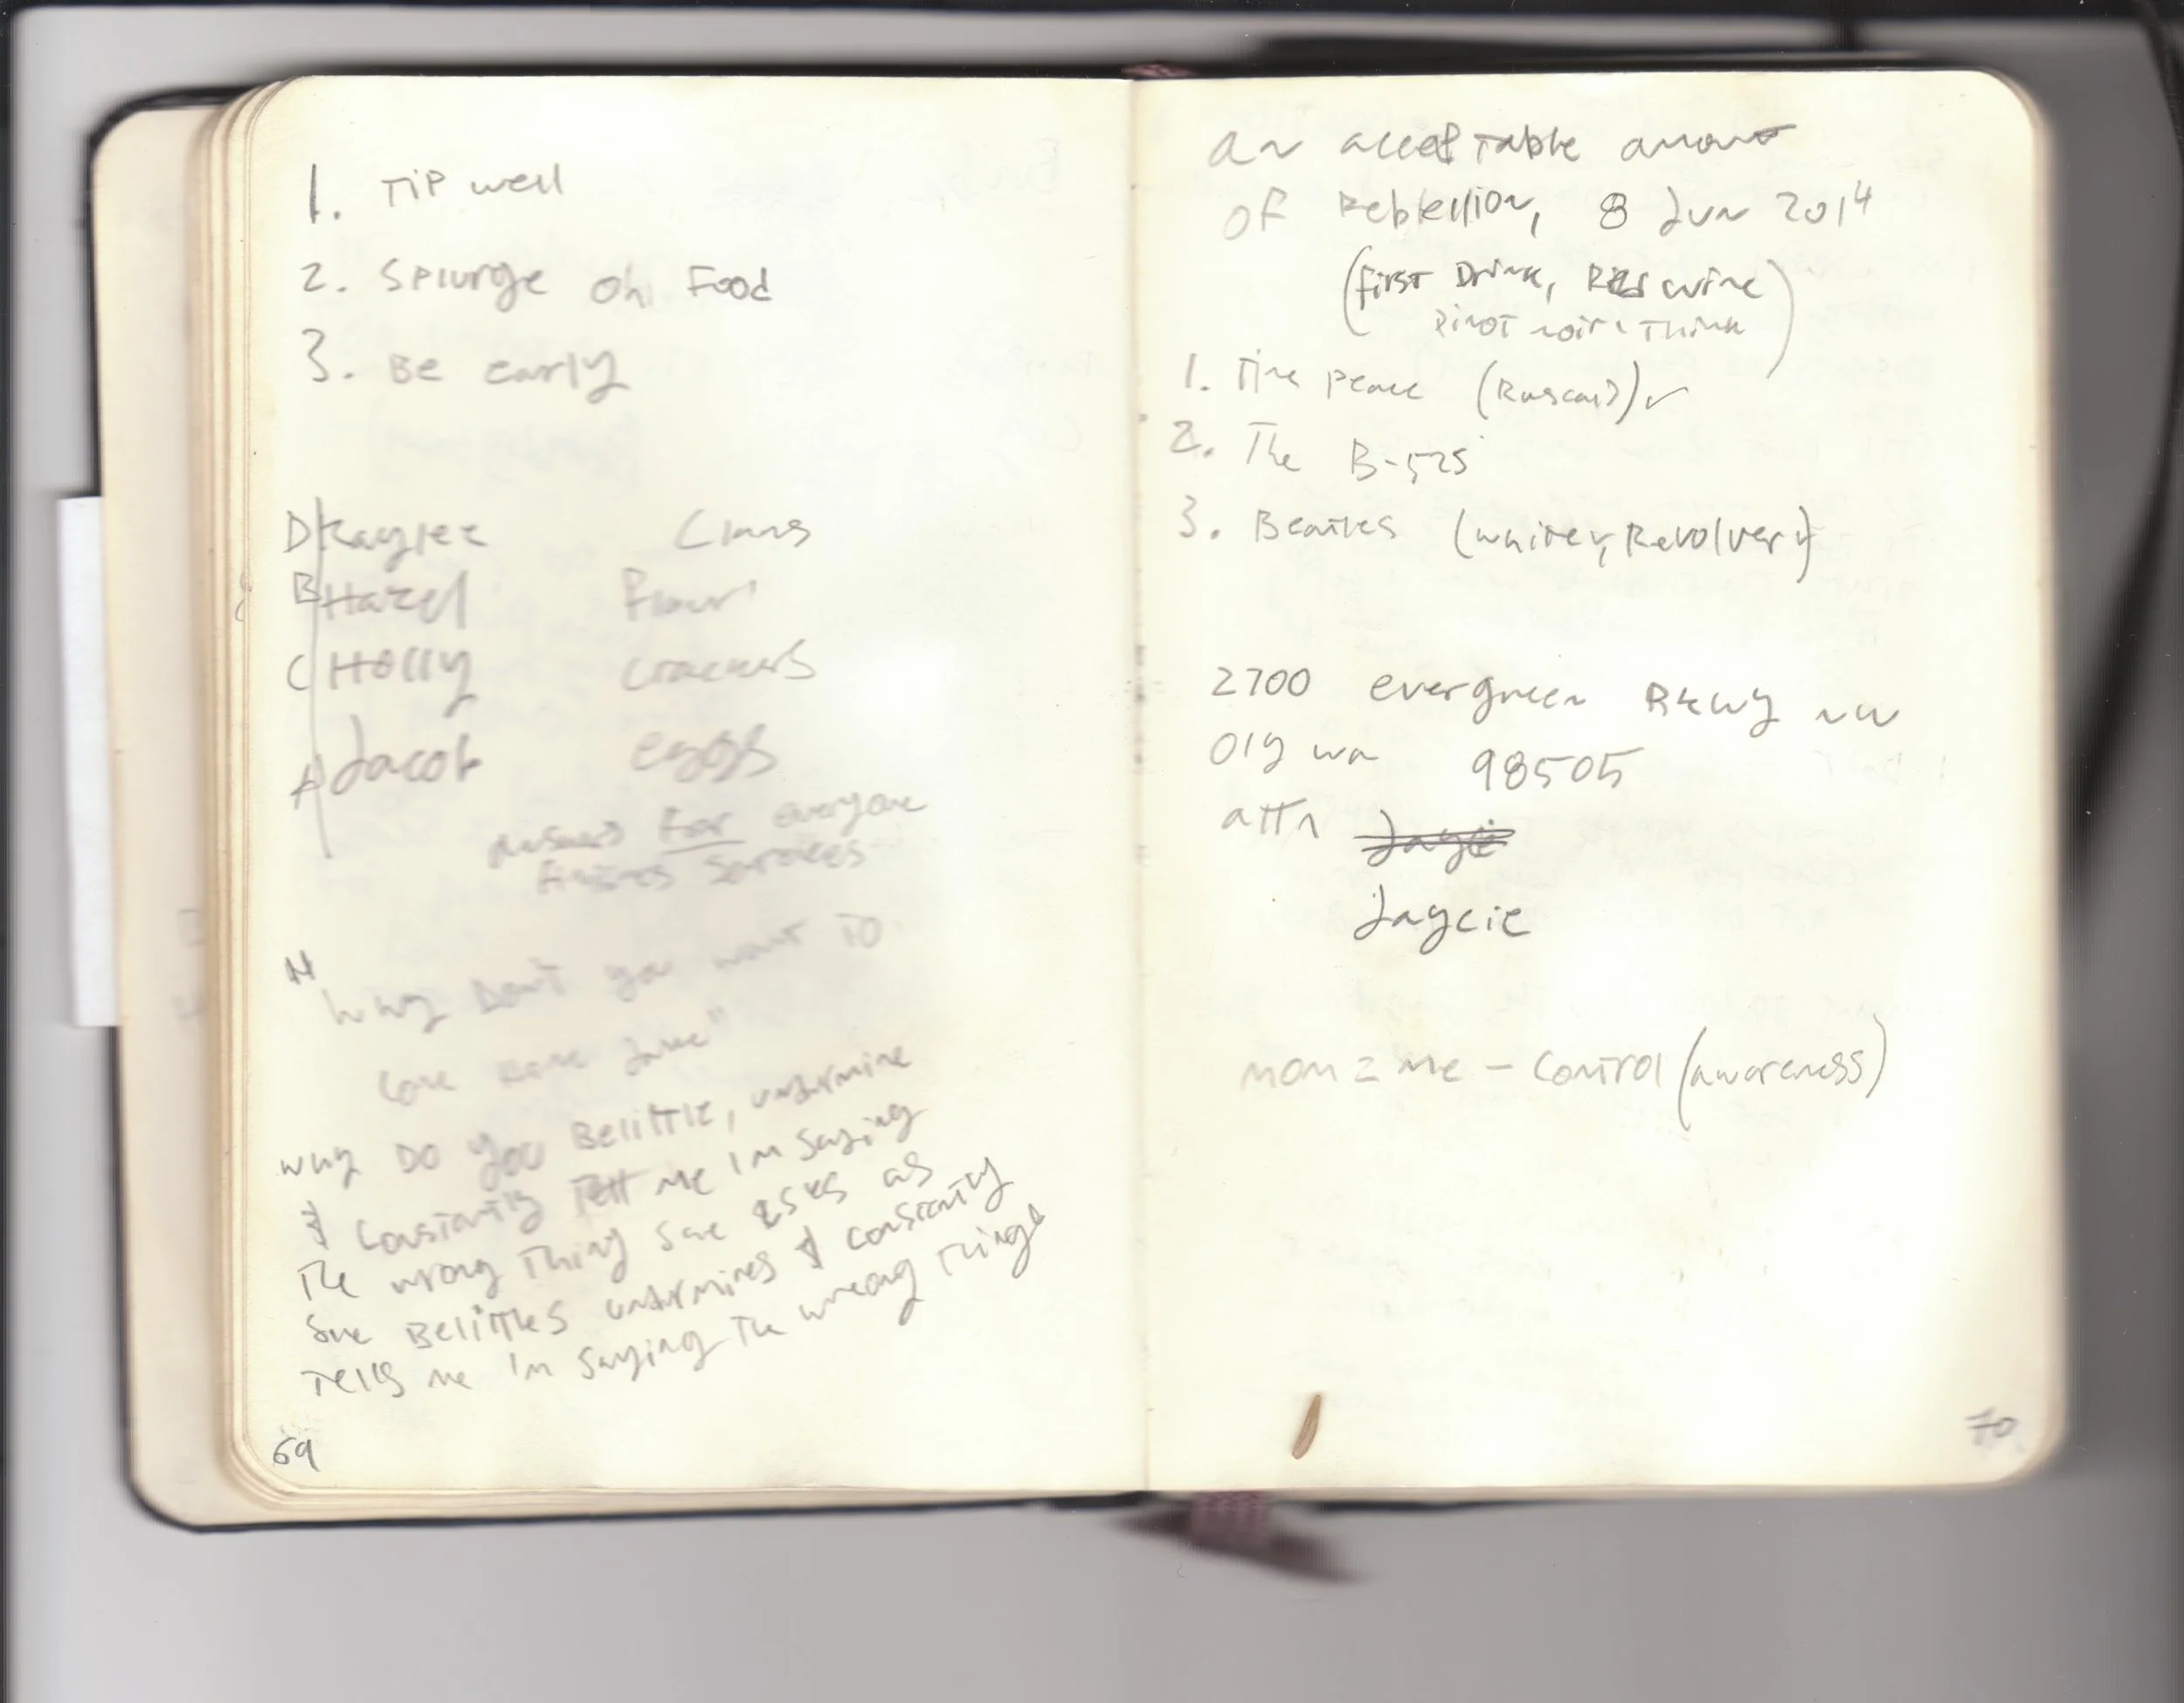 1. Tip well
2. Splurge on Food
3. Be early
D Kaylee Clams
B Hazel Flour
C Holly Crackers
A Jacob eggs
for everyone
finishes services
"Why Don't you want to
come home
Why Do you Belittle, undermine
& constantly Tell me I'm saying
The wrong Thing she asks as
she Belittles undermines & constantly
Tells me I'm saying The wrong Things
69
an acceptable amount
of Rebbellion, 8 Jun 2014
(First Drink, Red wine
Pinot noir I Think)
1. Time Peace (Rascals) ✓
2. The B-52s
3. Beatles (White, Revolver)
2700 evergreen Pkwy nw
Oly wa 98505
attn Jayci
Jaycie
mom = me - Control (awareness)
70